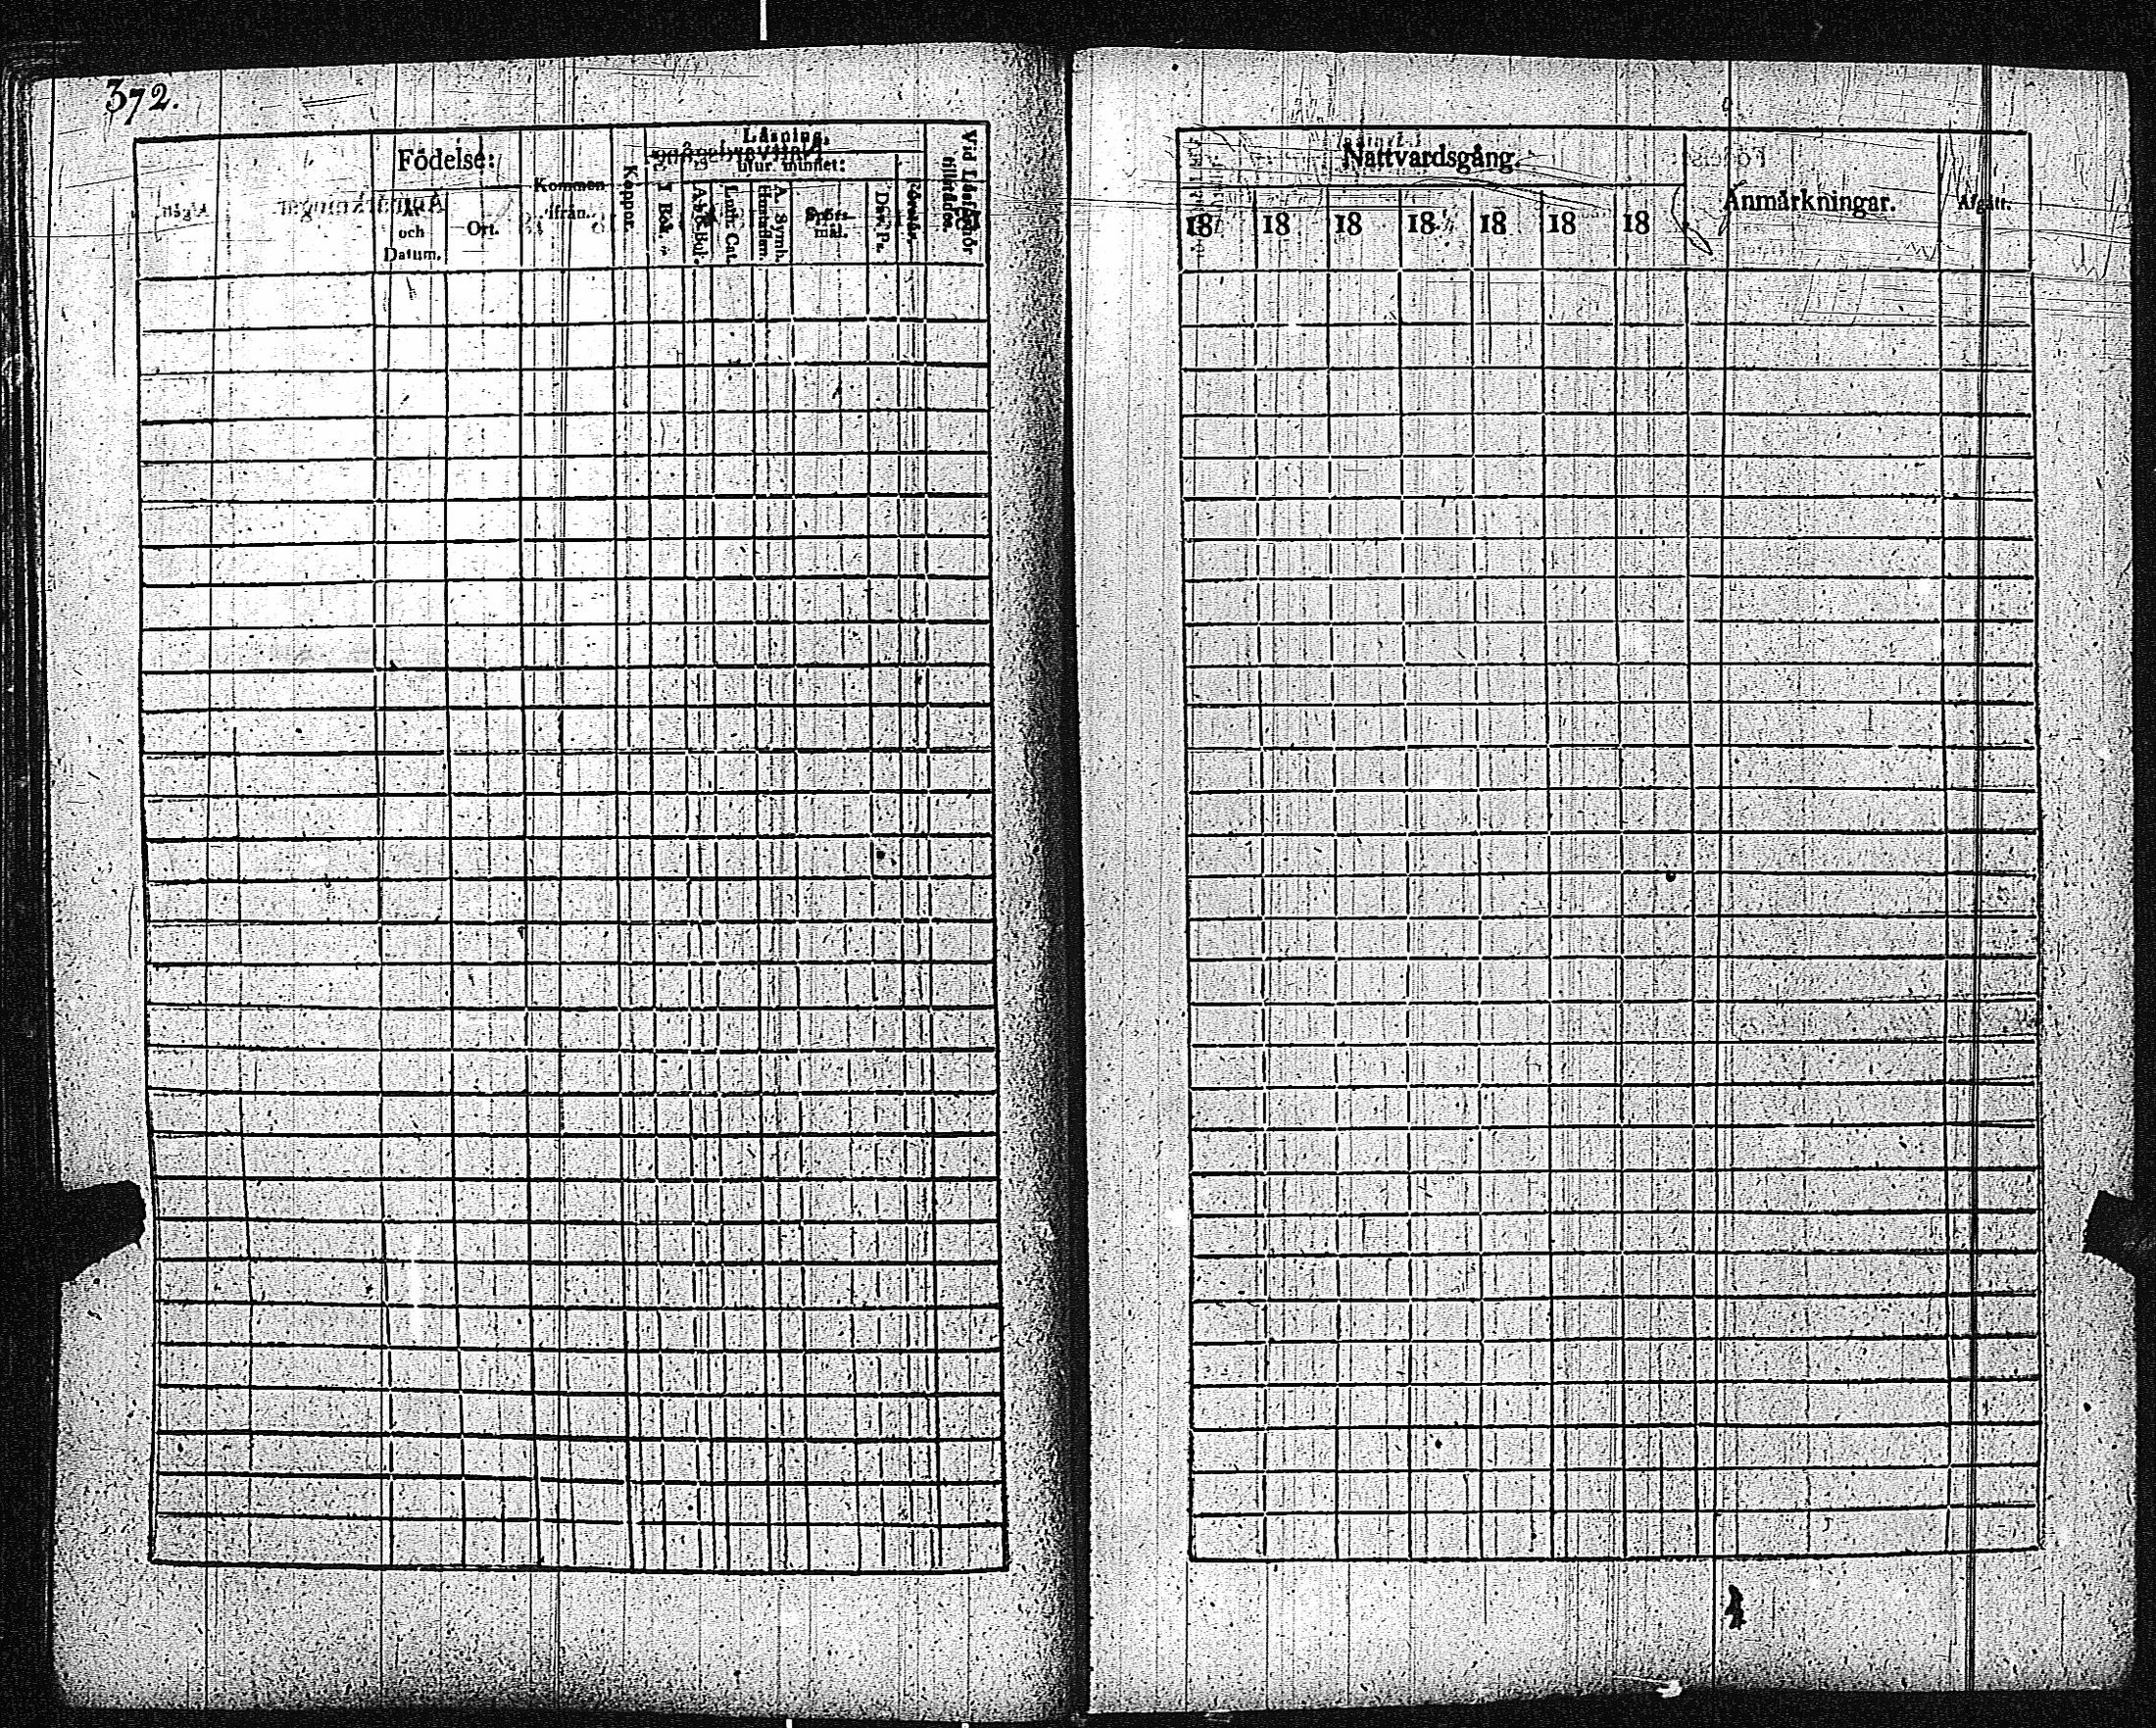 372.
Födelse:
och
Datum.
Ort.
Kommen
ifrån.
Koppor.
Läsning,
utur minnet:
I Bok
A.B.C. Bok
Luth. Cat.
A. Symb.
Hustaflan
Spörs-
mål.
Dav. Ps.
Vid Läsförhör
tillstädes.
Nattvardsgång.
18 18 18 18 18 18 18
Anmärkningar.
Afgått.